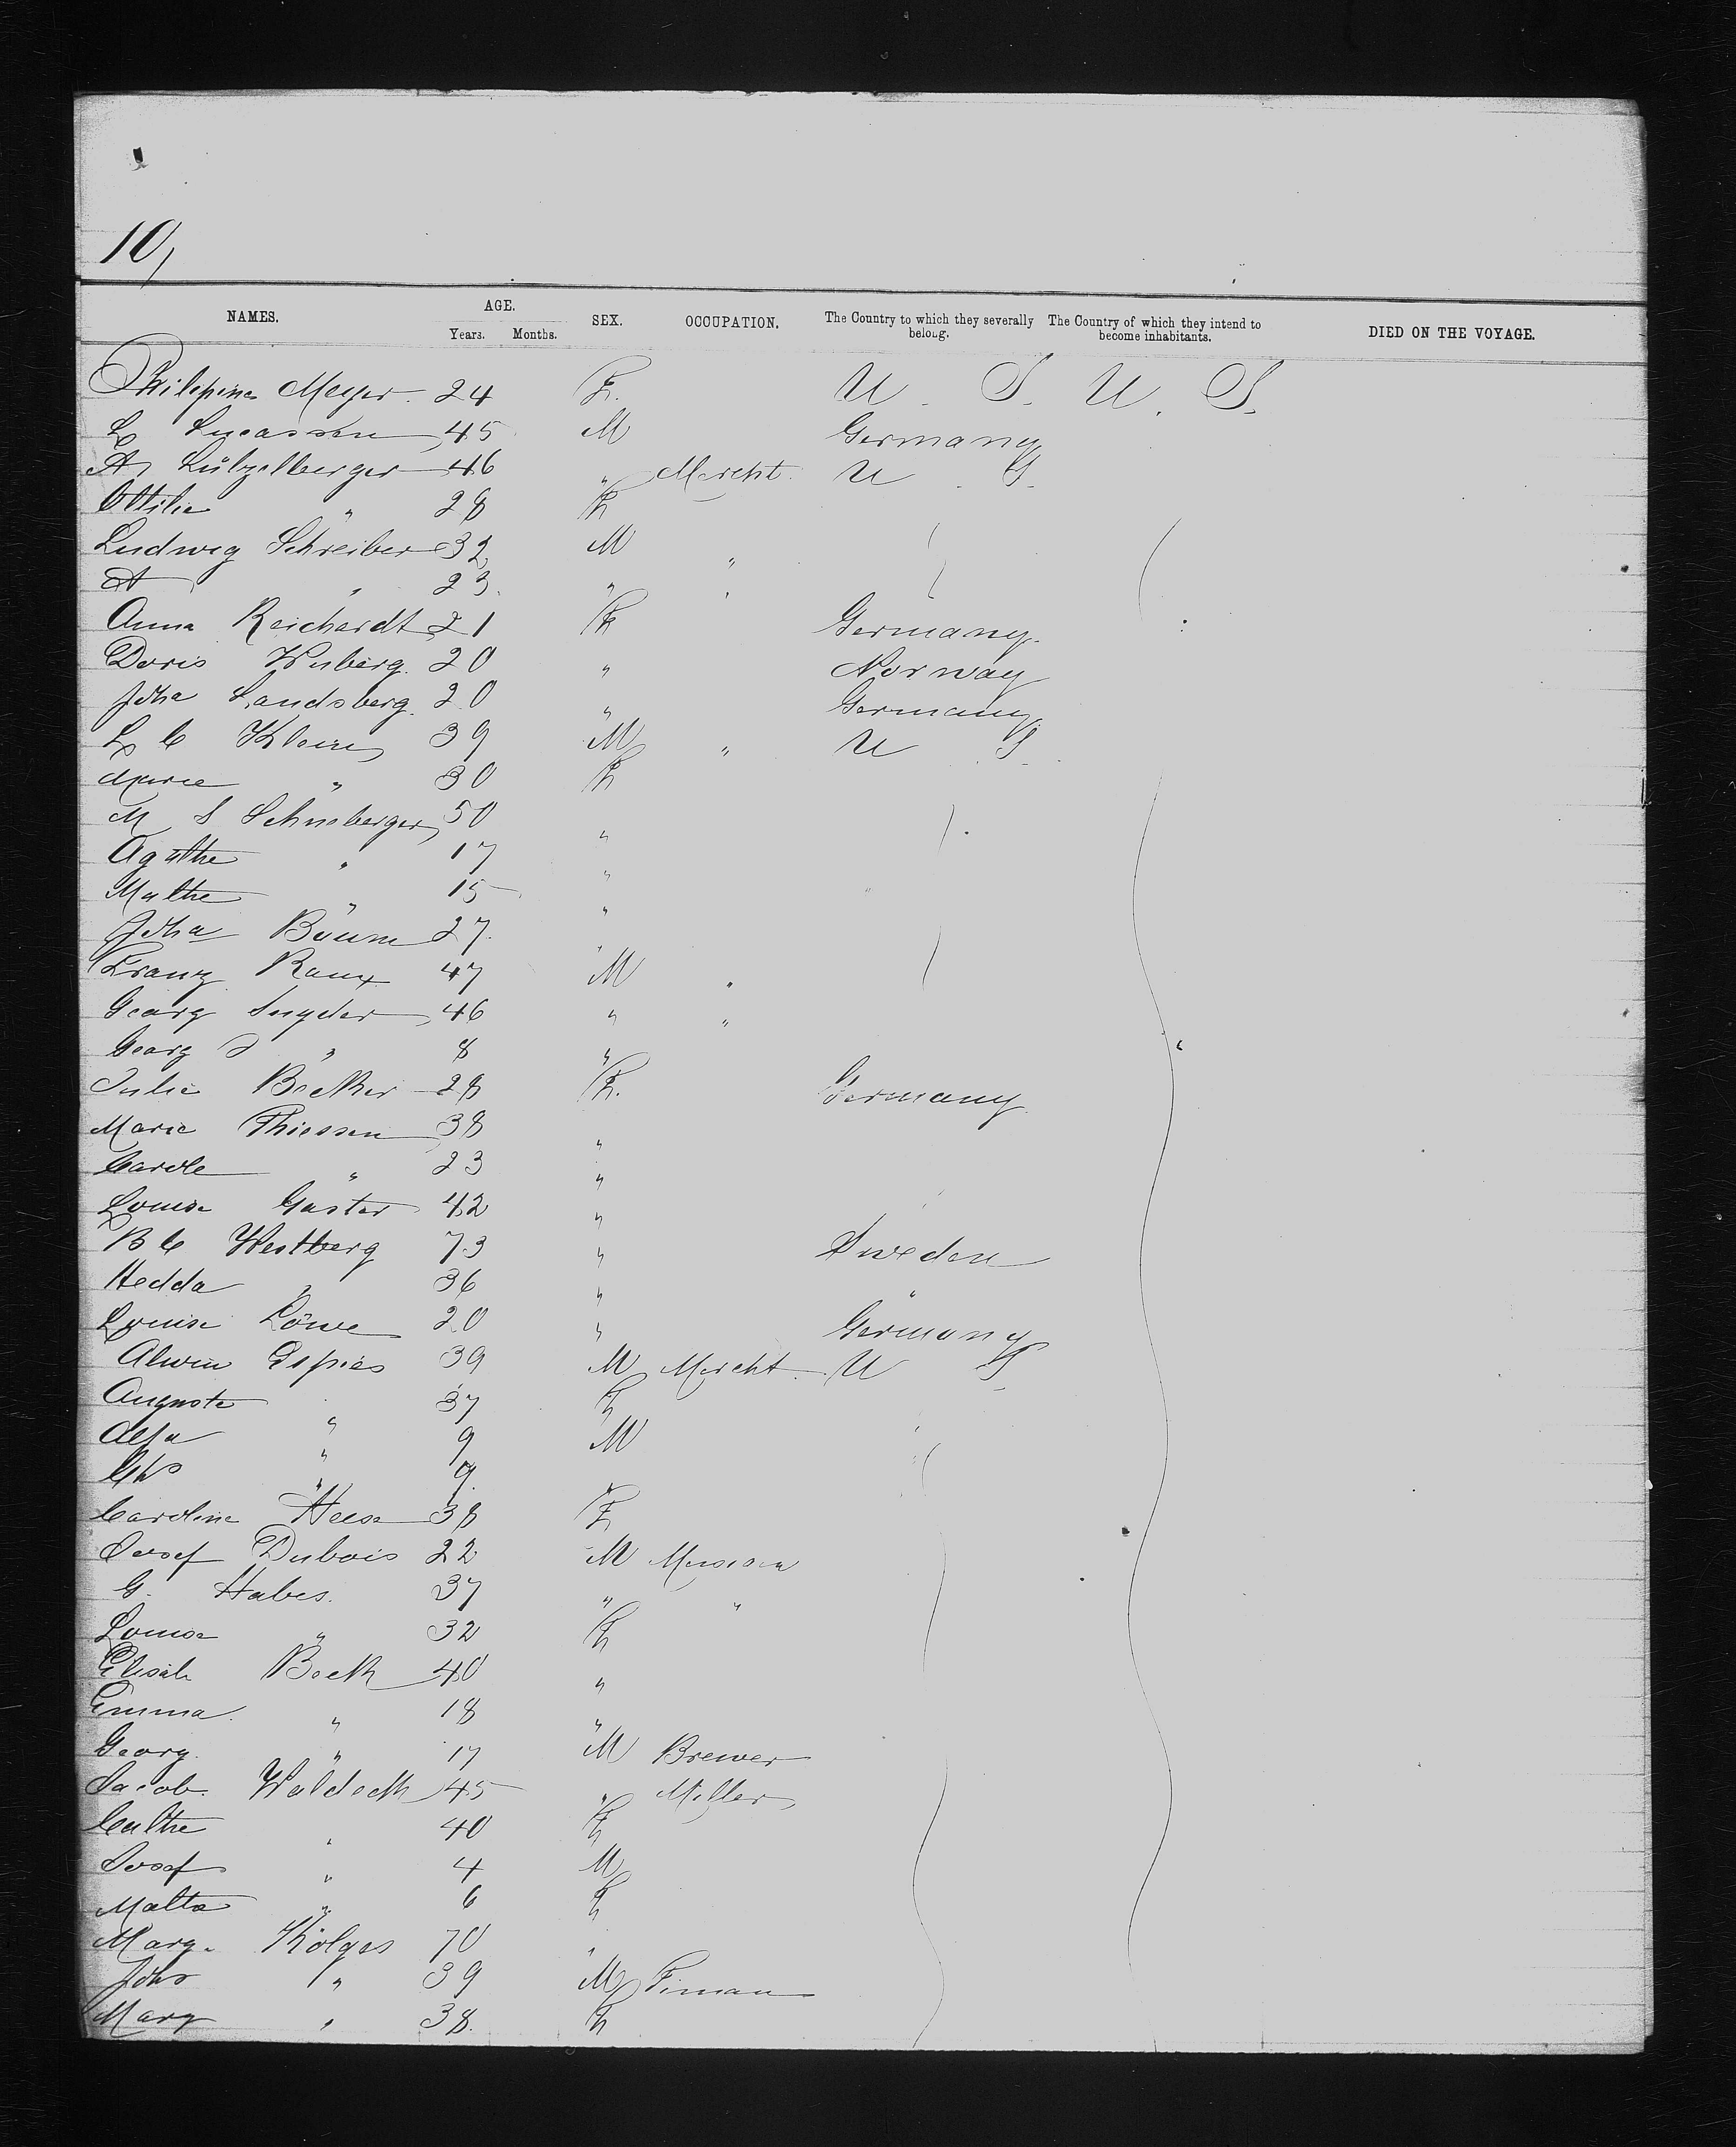 10,
NAMES. AGE. Years. Months. SEX. OCCUPATION. The Country to which they severally belong. The Country of which they intend to become inhabitants. DIED ON THE VOYAGE.
Philippine Meyer. 24 F. U. S. U. S.
L Lucassen 45 M Germany
A Lützelberger 46 " Mercht. U. S.
Ottilie " 28 F
Ludwig Schreiber 32 M "
A " 23. " "
Anna Reichardt 21 F Germany.
Doris Wuberg. 20 " Norway
Joha Landsberg. 20 " Germany.
L C Klein 39 M " U. S.
Marie " 30 F
M S Schneberger 50 "
Agathe " 17 "
Mathe " 15 "
Joha Baum 27. "
Franz Raux 47 M "
Georg Snyder 46 " "
Georg J " 8 "
Julie Becker 28 F. Germany
Marie Thiessen 38 "
Carole " 23 "
Louise Gaster 42 "
B C Westberg 73 " Sweden
Hedda " 36 " "
Louise Löwe 20 " Germany
Alwin 39 M Mercht. U S
Auguste " 37 F
" 9 M
Chs " 9. "
Caroline Heese 38 F
Josef Dubois 22 M
G. Habes. 37 " "
Louise " 32 F
Elisab Beck 40 "
Emma. " 18 "
Georg. " 17 M Brewer
Jacob. Waldeck 45 " Miller
Cathe " 40 F
Josef " 4 M
" 6 F
Marg. Kölges 70 "
Johs " 39 M
Marg " 38. F